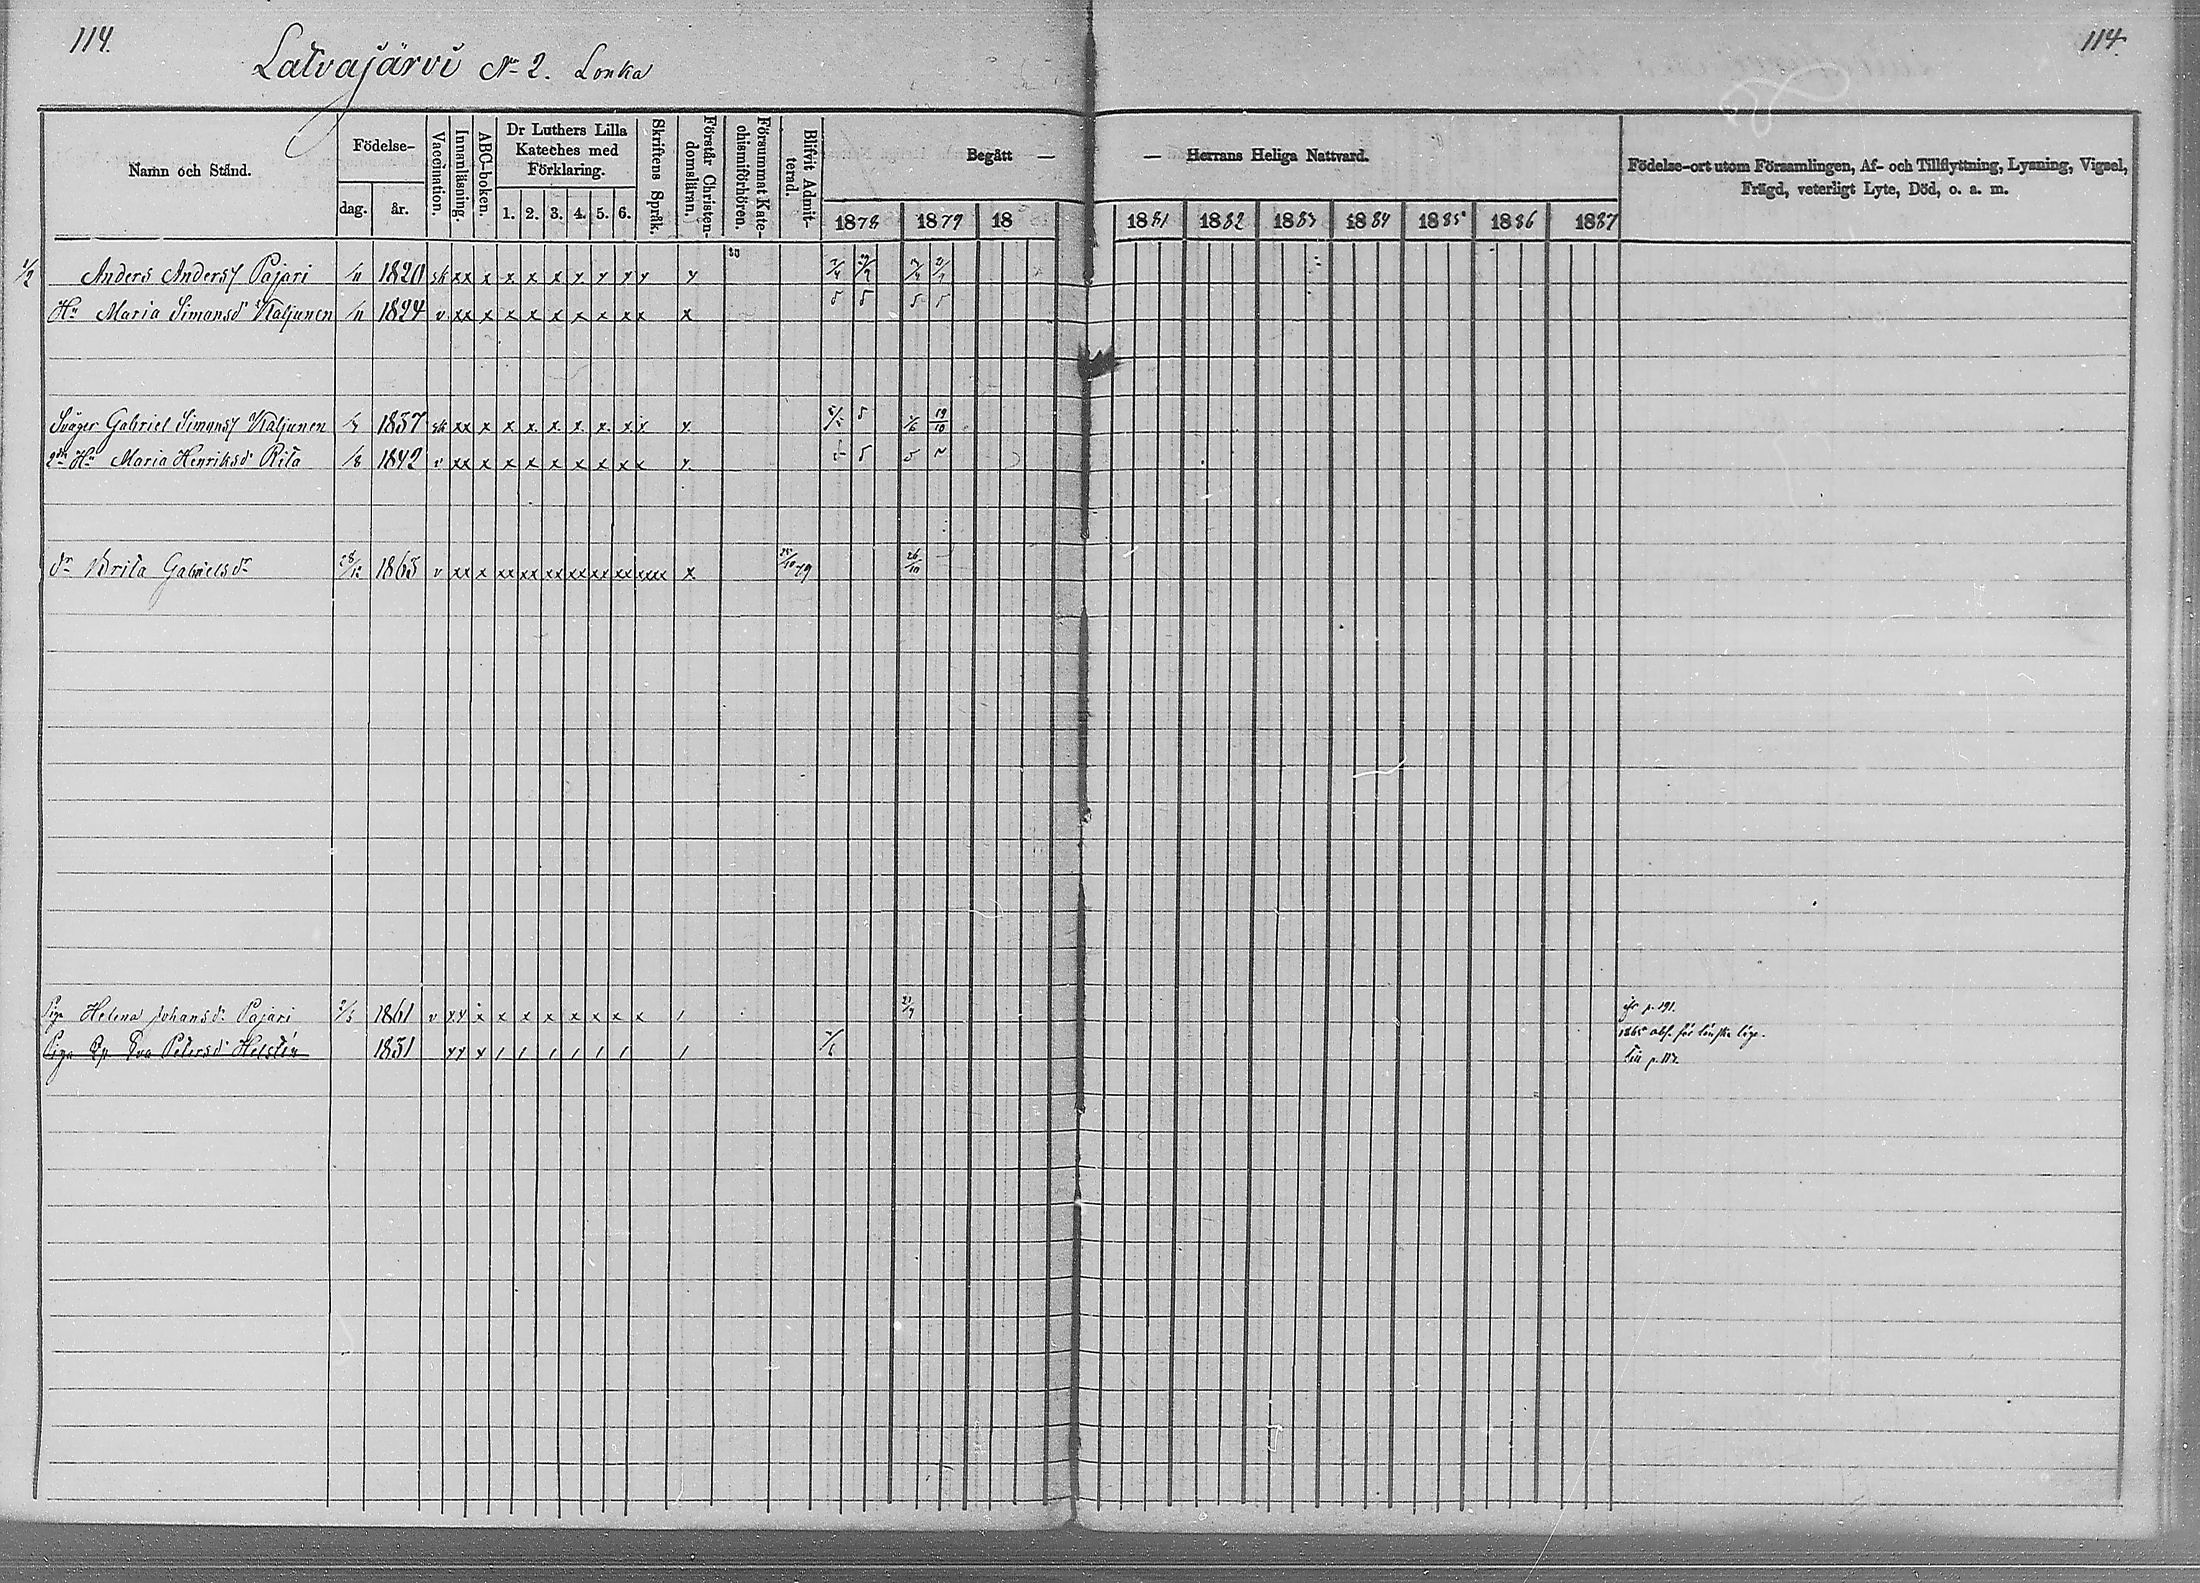 114.
114.
Latvajärvi No 2. Lonka
Namn och Stånd.
Födelse-
dag.
år.
Vaccination.
Innanläsning.
ABC-boken.
Dr Luthers Lilla
Kateches med
Förklaring.
1. 2. 3. 4. 5. 6.
Skriftens Språk.
Förstår Christen-
domsläran.
Försummat Kate-
chismiförhören.
Blifvit Admit-
terad.
Begått — — Herrans Heliga Nattvard.
1878 1879 18 1881 1882 1883 1884 1885 1886 1887
Födelse-ort utom Församlingen, Af- och Tillflyttning, Lysning, Vigsel,
Frägd, veterligt Lyte, Död, o. a. m.
1/2 Anders Anders Pajari /11 1820 sk xx x x x x x x x x
Hu Maria Simonsd Valjunen /11 1824 v xx x x x x x x x x x
Svåger Gabriel Simons Valjunen 1837 sk xx x x x x x x x x x 19/10
Hu Maria Henriksd Rita /8 1842 v xx x x x x x x x x x
dr Brita Gabrielsdr 28/12 1863 v xx x xx xx xx xx xx xx xxx x 25/10 79 26/10
Piga Helena Johansdr Pajari 1861 v xx x x x x x x x x
Piga Eva Petersd Helstén 1831 xx x
p. 191.
1865 abs. för
Till p. 117.